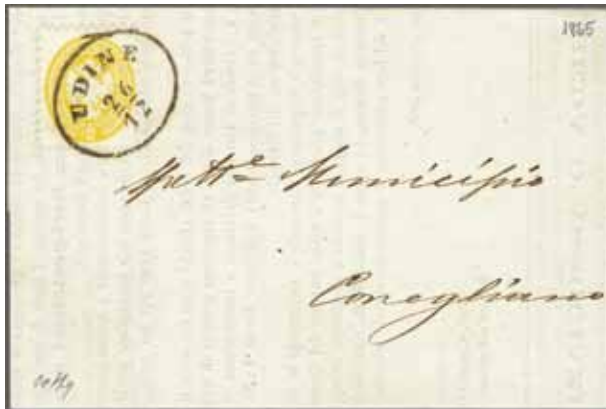 1865
UDINE
26
12
Spett.e Municipio
Conegliano